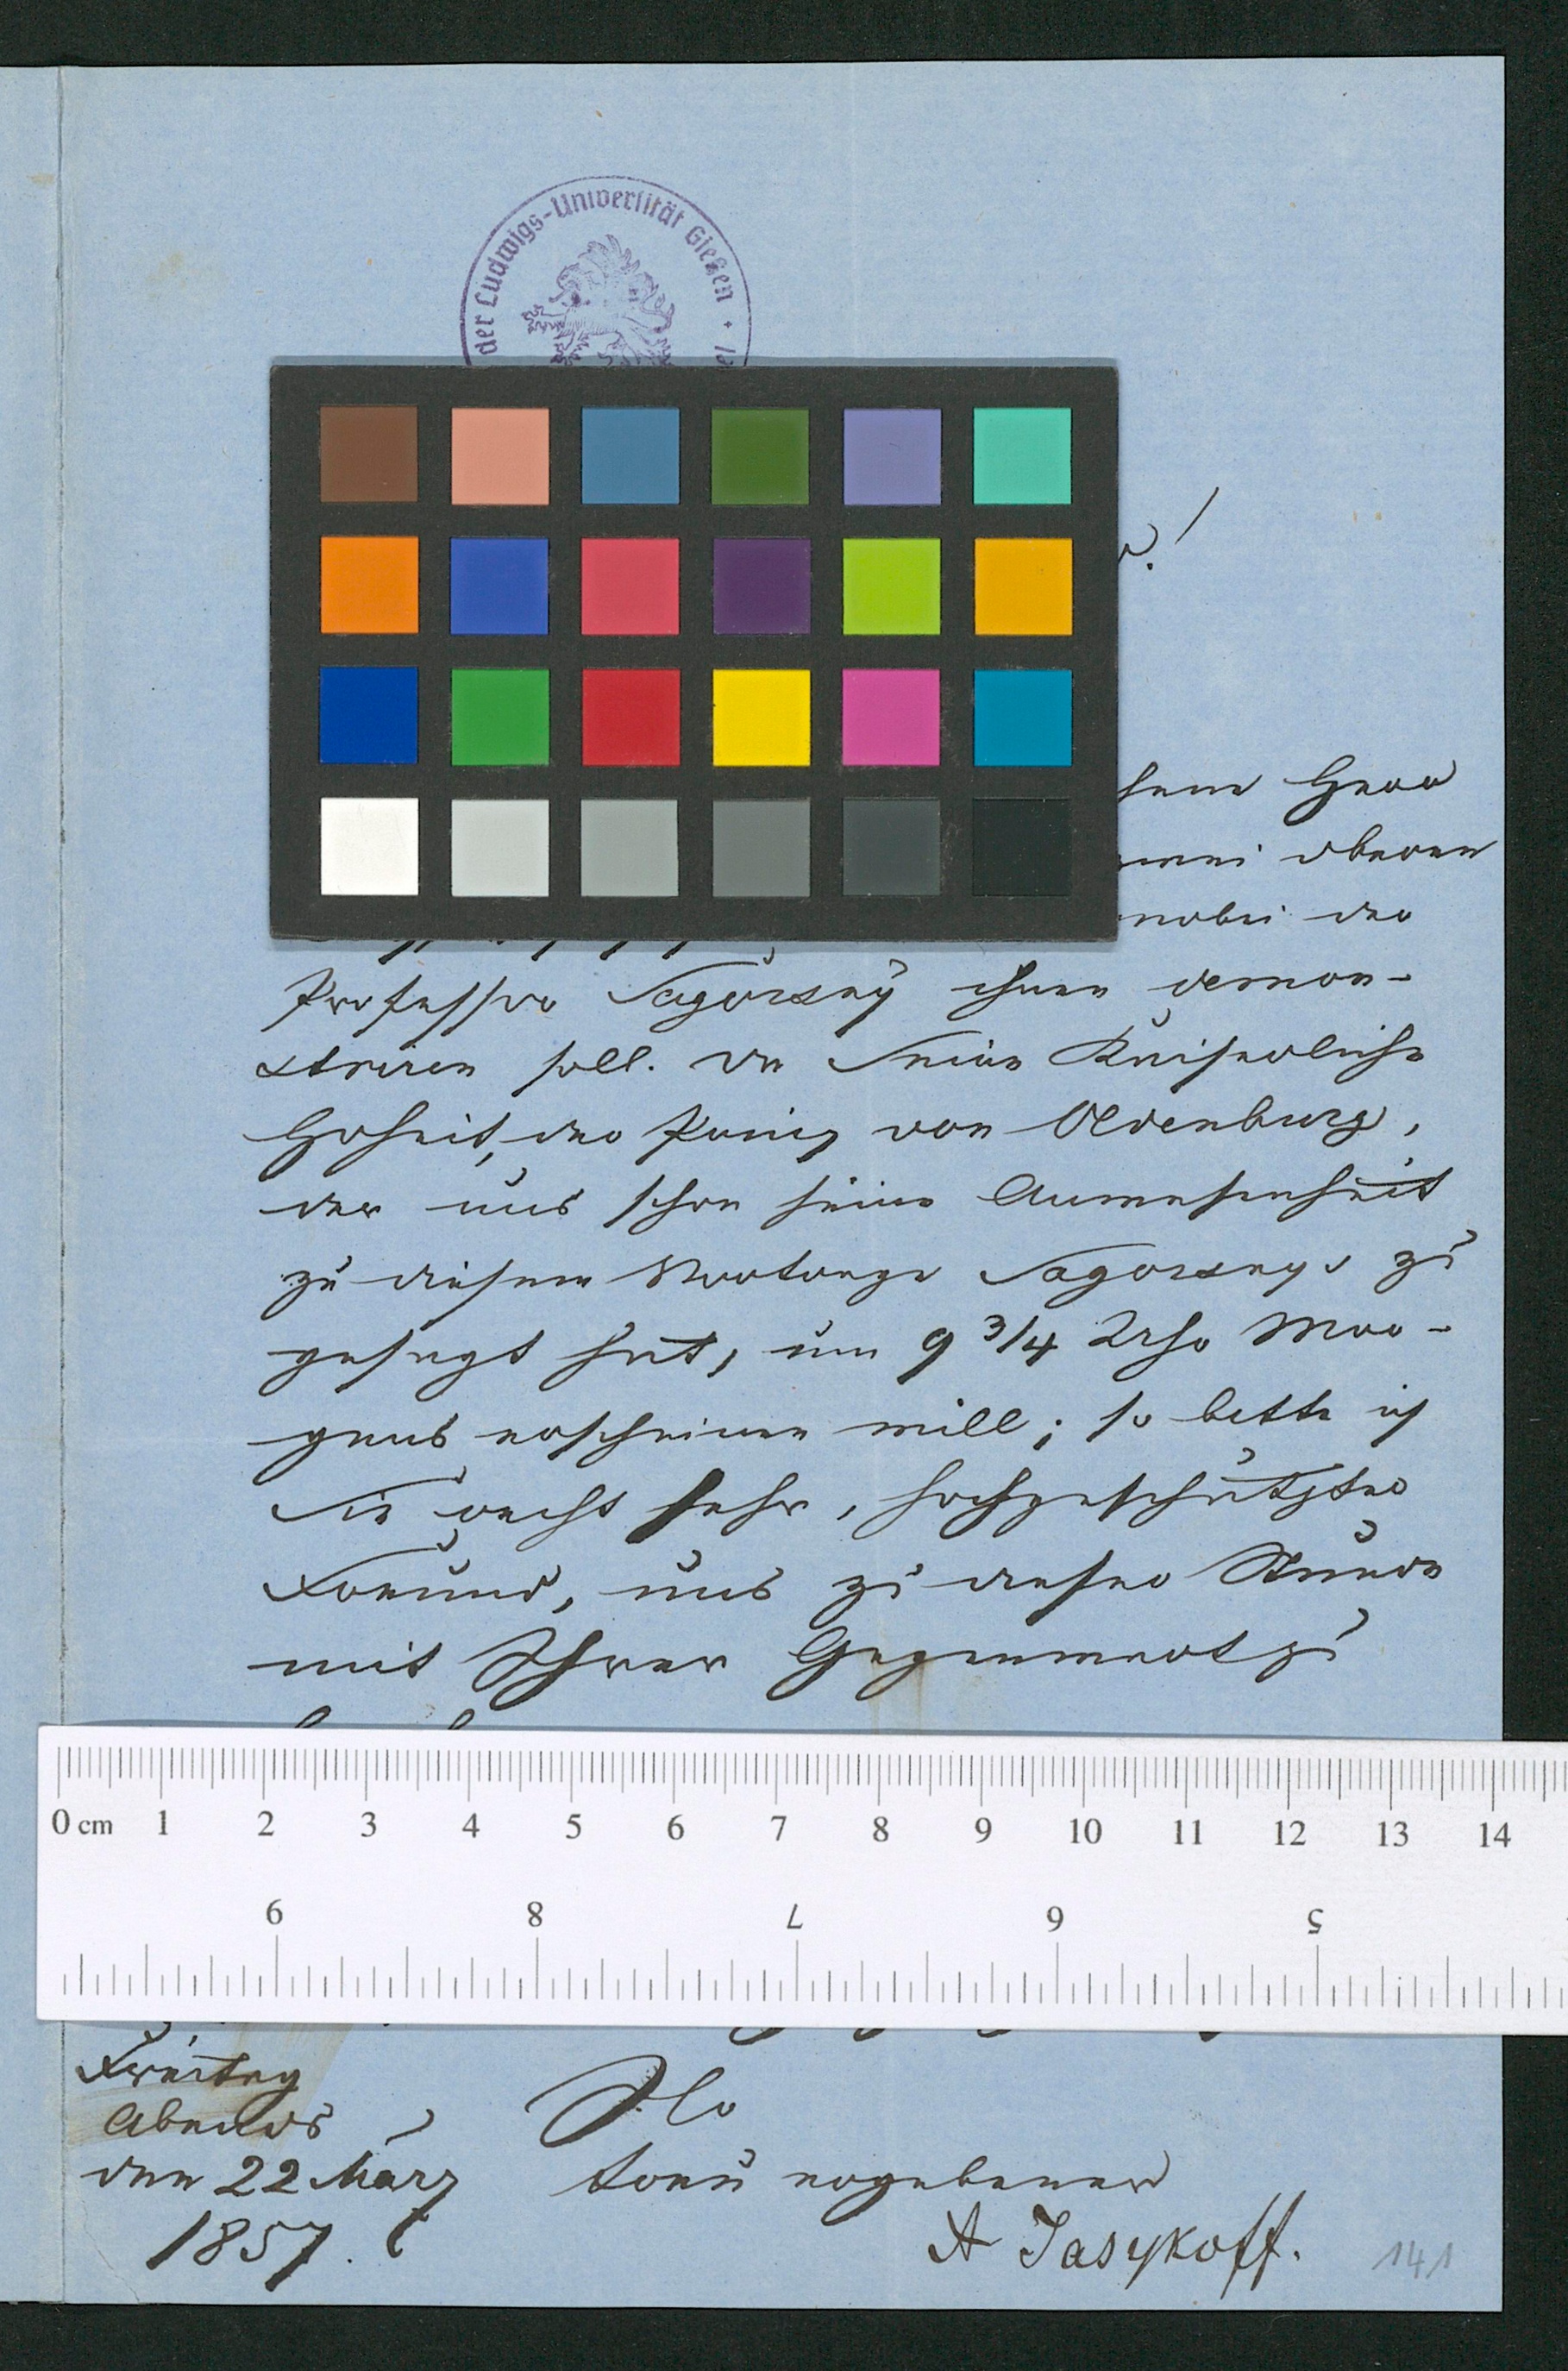 der Ludwigs-Universität Gießen
Herr
zwei oberen
wobei der
Professor Sagorsky ihnen demon-
striren soll. Da Seine Kaiserliche
Hoheit, der Prinz von Oldenburg,
der uns schon seine Anwesenheit
zu diesem Vortrage Sagorskys zu
gesagt hat, um 9 3/4 Uhr Mor-
gens erscheinen will; so bitte ich
Sie recht sehr, hochgeschätzter
Freund, uns zu dieser Stunde
mit Ihrer Gegenwart zu
0 cm 1 2 3 4 5 6 7 8 9 10 11 12 13 14
9 8 7 6 5
Freitag
Abends
den 22 März
1857.
Ihr
treu ergebener
A Jasykoff.
141